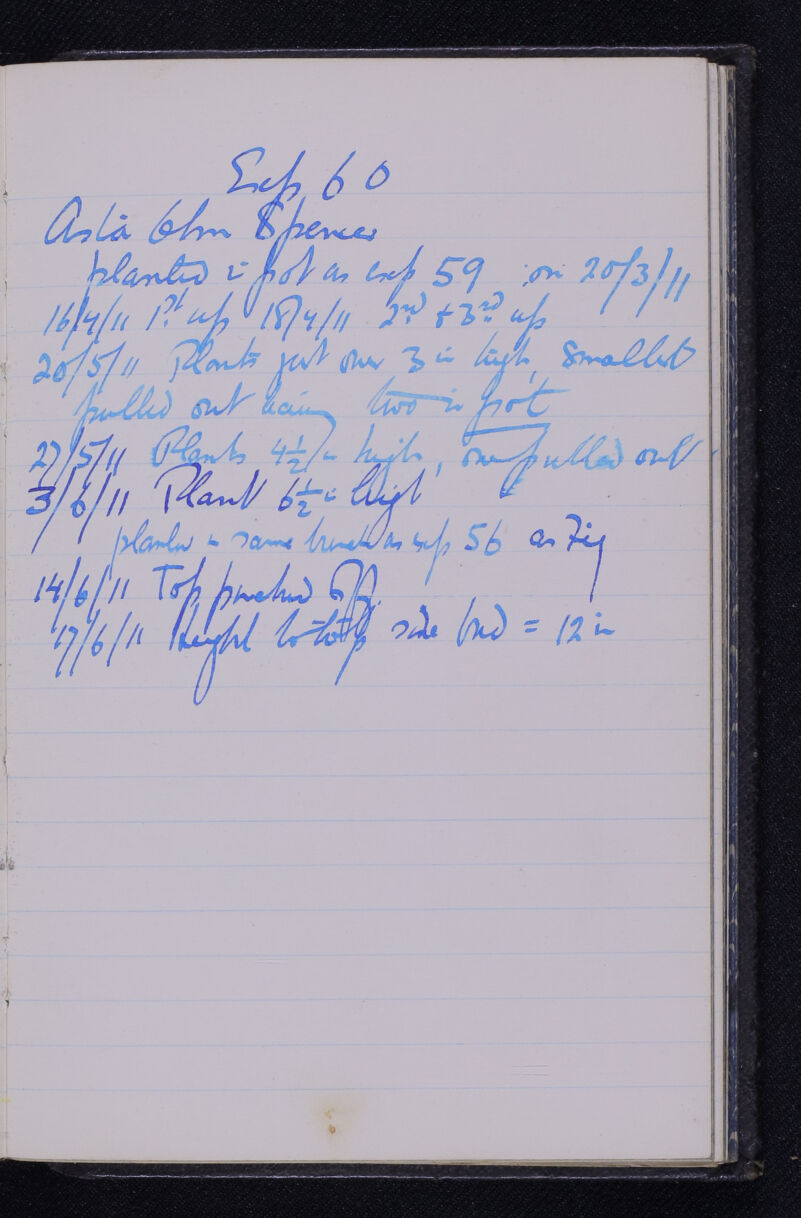 Exp 60
Asta Ohn Spencer
planted in pot as exp 59 on 20/3/11
16/4/11 1st up 18/4/11 2nd & 3rd up
20/5/11 Plants just over 3 in high, Smallest
pulled out leaving two in pot
27/5/11 Plants 4½ in high, one pulled out
3/6/11 Plant 6½ in high
planted in same trench as exp 56 as Fig
14/6/11 Top pinched off
17/6/11 height to top side bud = 12 in